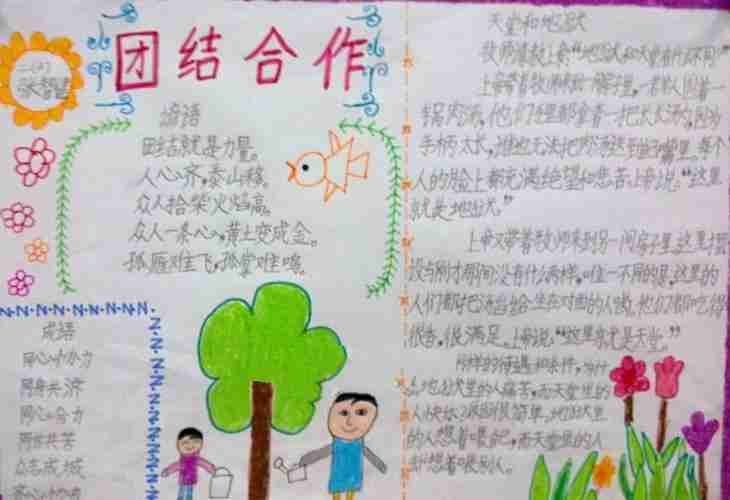 团结合作
谚语
团结就是力量。
人心齐,泰山移。
众人拾柴火焰高。
众人一条心,黄土变成金。
孤雁难飞,孤掌难鸣。
成语
同心协力
同舟共济
同心合力
同甘共苦
众志成城
天堂和地狱
牧师请教上帝:“地狱和天堂有什么不同?”
上帝带着牧师来到一间房子里。一群人围着一
锅肉汤,他们手里都拿着一把长长汤勺,因为
手柄太长,谁也无法把肉汤送到自己嘴里。每个
人的脸上都充满绝望和悲苦。上帝说:“这里
就是地狱。”
上帝又带着牧师来到另一间房子里。这里摆
设与刚才那间没有什么两样,唯一不同的是,这里的
人们都把汤舀给坐在对面的人喝。他们都吃得
很香,很满足。上帝说:“这里就是天堂。”
同样的待遇和条件,为什
么地狱里的人痛苦,而天堂里的
人快乐?原因很简单:地狱里
的人想着喂自己,而天堂里的人
却想着喂别人。